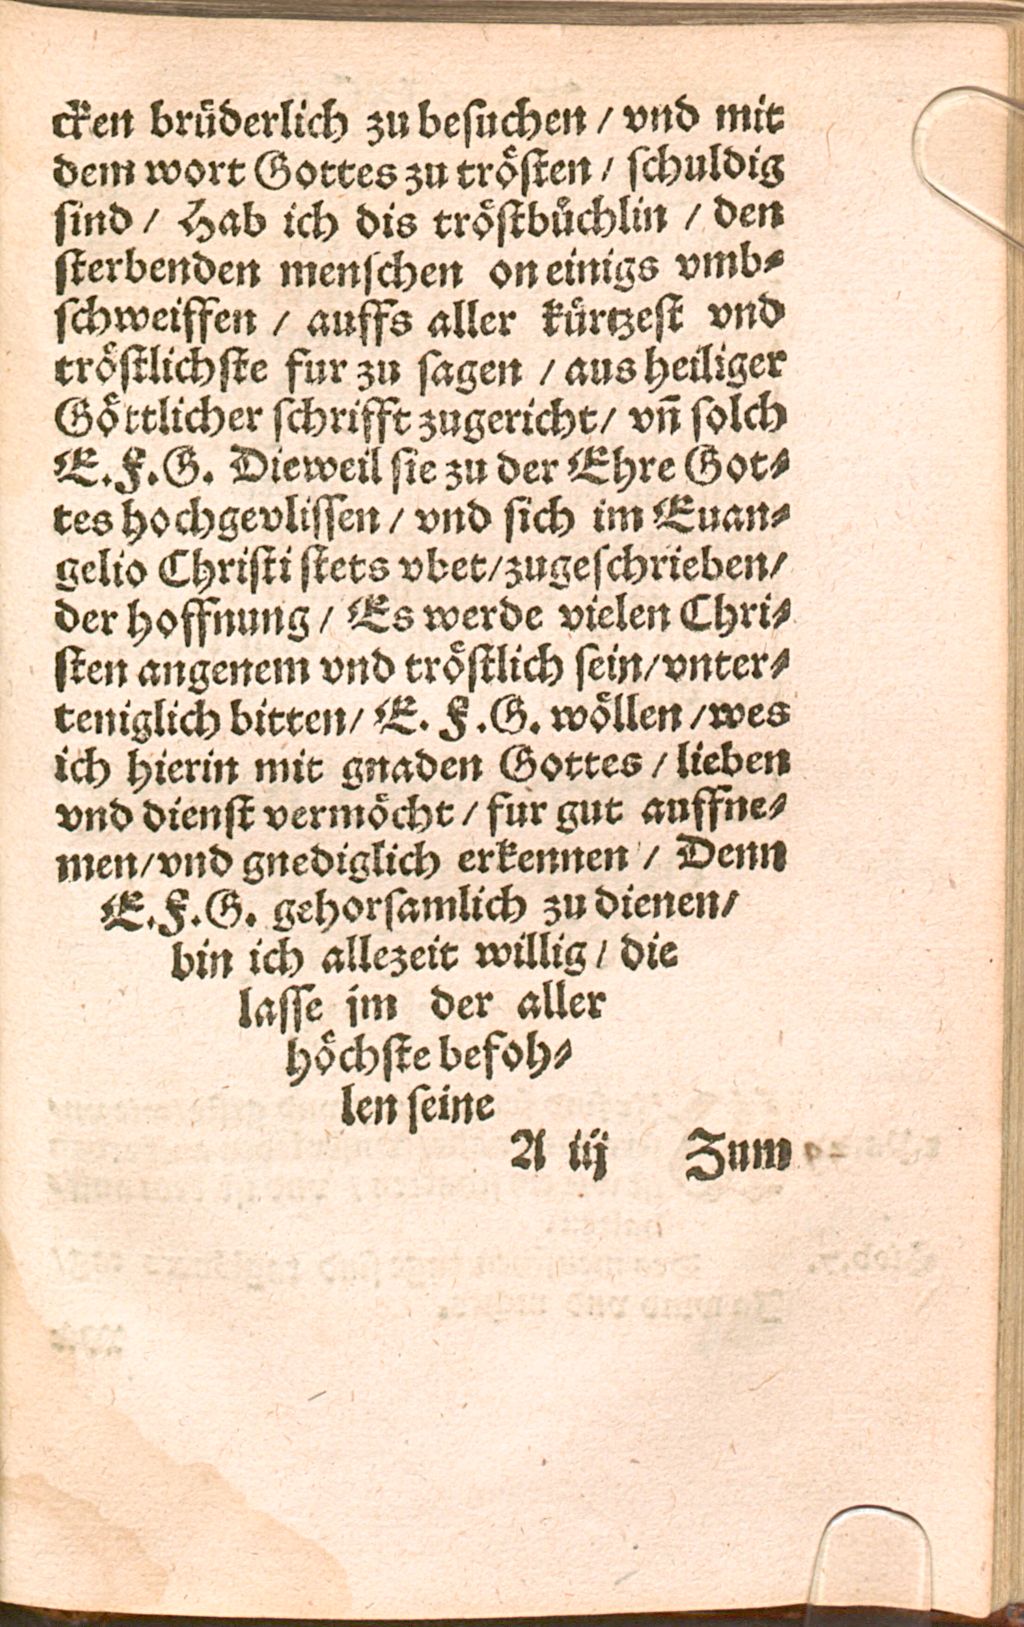 cken brüderlich zu besuchen / vnd mit
dem wort Gottes zu trösten / schuldig
sind / Hab ich dis tröstbüchlin / den
sterbenden menschen on einigs vmb⸗
schweiffen / auffs aller kürtzest vnd
tröstlichste fur zu sagen / aus heiliger
Göttlicher schrifft zugericht / vn̄ solch
E. F. G. Dieweil sie zu der Ehre Got⸗
tes hochgevlissen / vnd sich im Euan⸗
gelio Christi stets vbet / zugeschrieben /
der hoffnung / Es werde vielen Chri⸗
sten angenem vnd tröstlich sein / vnter⸗
teniglich bitten / E. F. G. wöllen / wes
ich hierin mit gnaden Gottes / lieben
vnd dienst vermöcht / fur gut auffne⸗
men / vnd gnediglich erkennen / Denn
E. F. G. gehorsamlich zu dienen /
bin ich allezeit willig / die
lasse jm der aller
höchste befoh⸗
len seine
A iij Zum